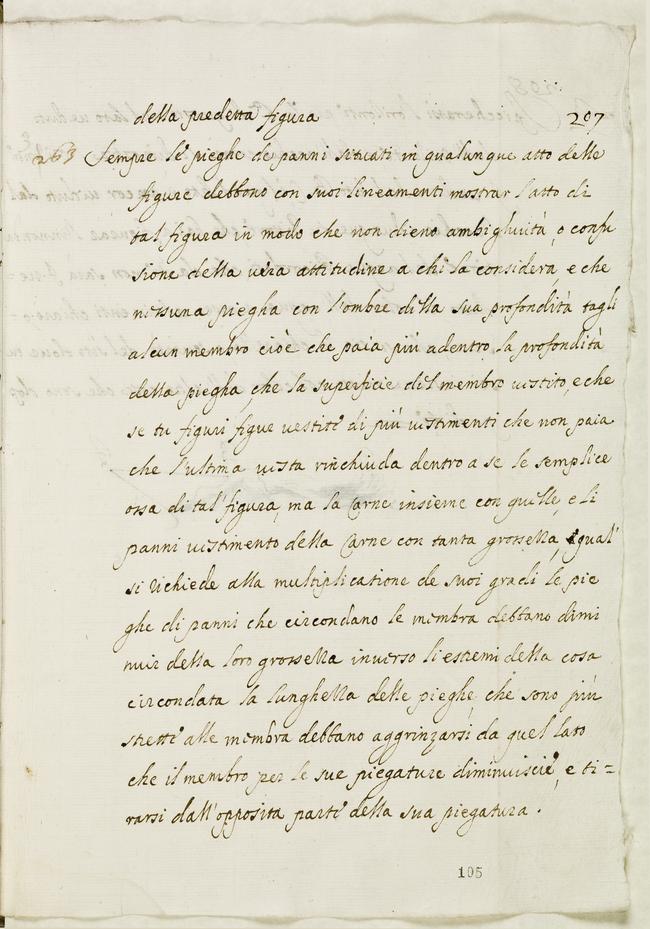 della predetta figura 207
263 Sempre le pieghe de panni situati in qualunque atto delle
figure debbono con suoi lineamenti mostrar l'atto di
tal figura in modo che non dieno ambighuità, o confu
sione della vera attitudine a chi la considera, e che
nessuna piegha con l'ombre della sua profondità tagli
alcun membro cioè che paia più adentro la profondità
della piegha, che la superficie del membro vestito, e che
se tu figuri figure vestite di più vestimenti che non paia
che l'ultima vesta rinchiuda dentro a se le semplice
ossa di tal figura, ma la Carne insieme con quelle, e li
panni vestimento della Carne con tanta grossezza, qual'
si richiede alla multiplicatione de suoi gradi le pie
ghe di panni che circondano le membra debbano dimi
nuir della loro grossezza inverso li estremi della cosa
circondata la lunghezza delle pieghe, che sono più
strette alle membra debbano aggrinzarsi da quel lato
che il membro per le sue piegature diminuisce, e ti=
rarsi dall'opposita parte della sua piegatura.
105